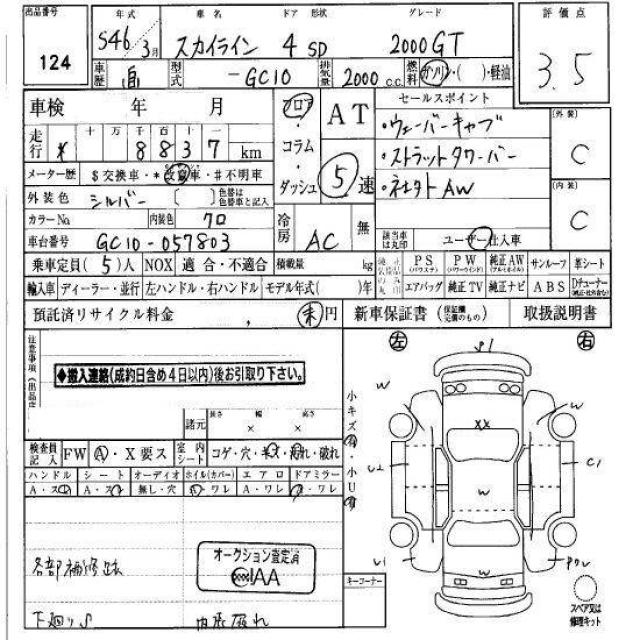 出品番号 年式 車名 ドア 形状 グレード 評価点
124 S46/3月 スカイライン 4 SD 2000GT 3.5
車歴 自 型式 -GC10 排気量 2000 c.c. 燃料 ガソリン・( )・軽油
車検 年 月 フロア AT セールスポイント
・ウェーバーキャブ (外装)
走行 十 万 千 百 十 一 コラム ・ストラットタワーバー C
* 8 8 3 7 km
メーター歴 $交換車・*改ざん車・#不明車 ダッシュ 5速 AW (内装)
外装色 シルバー ( ) 色替は色替車と記入 C
カラーNo. 内装色 クロ 冷房 AC 無 該当車は丸印 ユーザー仕入車
車台番号 GC10-057803
乗車定員(5)人 NOX 適合・不適合 積載量 kg PS (パワステ) PW (パワーウインド) 純正AW (アルミホイル) サンルーフ 革シート
輸入車 ディーラー・並行 左ハンドル・右ハンドル モデル年式( )年 エアバッグ 純正TV 純正ナビ ABS Dチューナー
預託済リサイクル料金 (未)円 新車保証書 (保証書 定備のもの) 取扱説明書
注意事項(出品店) 左 右
◆搬入連絡(成約日含め4日以内)後お引取り下さい。
諸元 長さ × 幅 × 高さ
小キズ有・小U有
検査員記入 FW A・X要ス 室内シート コゲ・穴・キズ・汚れ・破れ
ハンドル シート オーディオ ホイル(カバー) エアロ ドアミラー
A・スレ A・スレ 無し・穴 キ・ワレ A・ワレ ・ワレ
S1
W XX W
U2 W C1
U1 W
各部補修跡 オークション査定済
IAA
キーコーナー
下廻りS 内張破れ スペア又は
修理キット